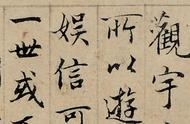 觀宇
所以遊
娛信可
一世或